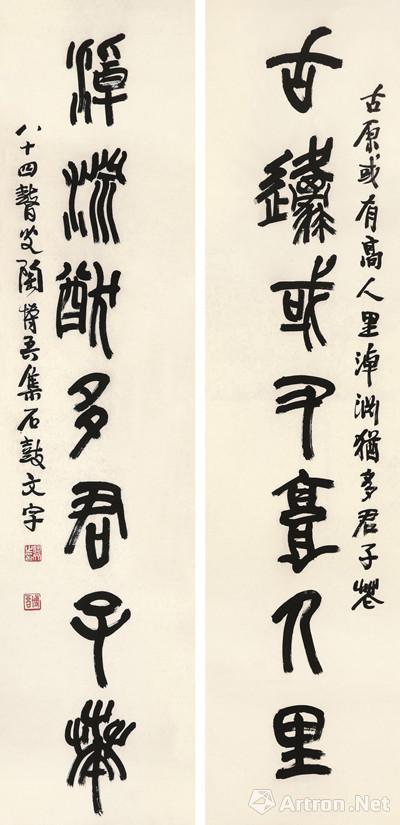 古原或有高人里淖渊猶多君子華
古邍或又高人里
淖淵猶多君子華
八十四瞽叟陶博吾集石鼓文字
Artron.Net